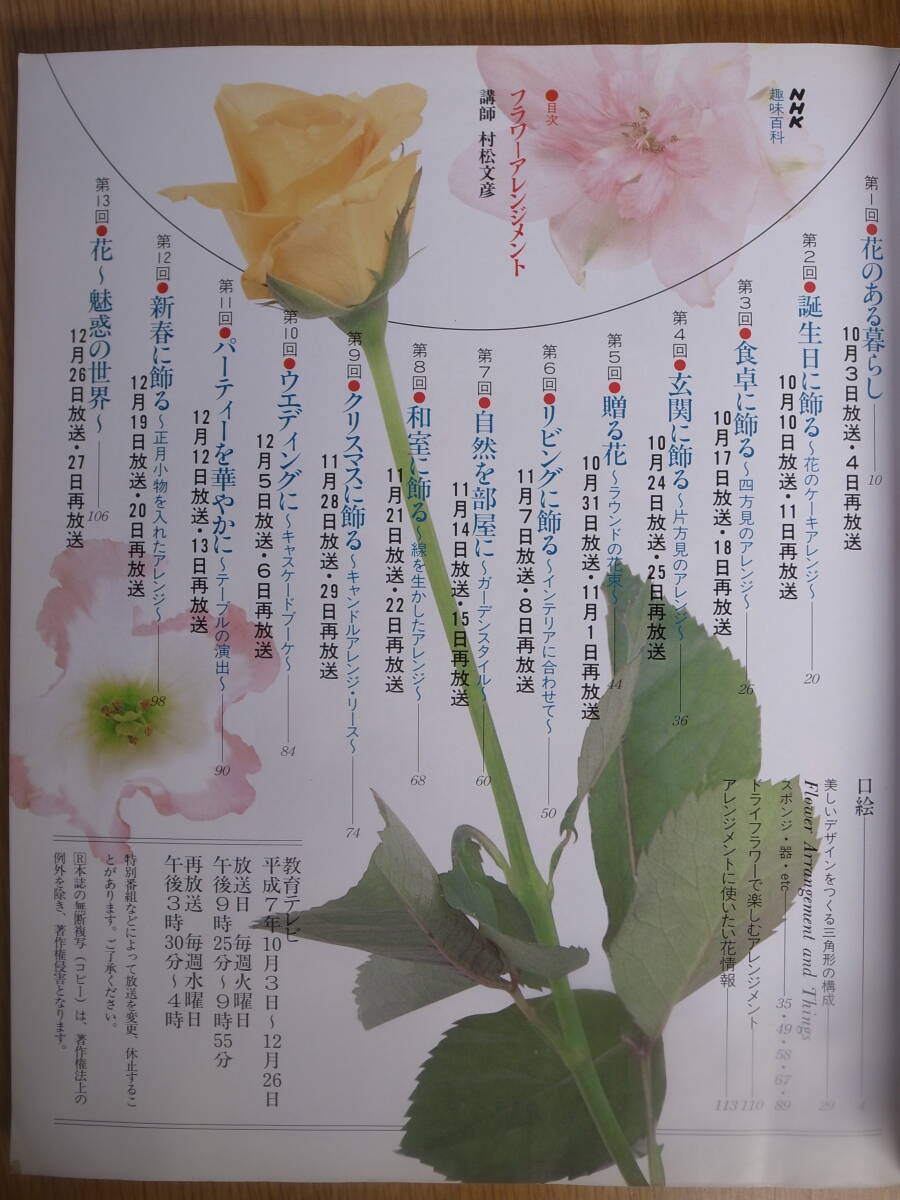 NHK
趣味百科
●目次
フラワーアレンジメント
講師 村松文彦
第1回●花のある暮らし——10
10月3日放送・4日再放送
第2回●誕生日に飾る〜花のケーキアレンジ〜——20
10月10日放送・11日再放送
第3回●食卓に飾る〜四方見のアレンジ〜——26
10月17日放送・18日再放送
第4回●玄関に飾る〜片方見のアレンジ〜——36
10月24日放送・25日再放送
第5回●贈る花〜ラウンドの花束〜——44
10月31日放送・11月1日再放送
第6回●リビングに飾る〜インテリアに合わせて〜——50
11月7日放送・8日再放送
第7回●自然を部屋に〜ガーデンスタイル〜——60
11月14日放送・15日再放送
第8回●和室に飾る〜線を生かしたアレンジ〜——68
11月21日放送・22日再放送
第9回●クリスマスに飾る〜キャンドルアレンジ・リース〜——74
11月28日放送・29日再放送
第10回●ウエディングに〜キャスケードブーケ〜——84
12月5日放送・6日再放送
第11回●パーティーを華やかに〜テーブルの演出〜——90
12月12日放送・13日再放送
第12回●新春に飾る〜正月小物を入れたアレンジ〜——98
12月19日放送・20日再放送
第13回●花〜魅惑の世界〜——106
12月26日放送・27日再放送
口絵——4
美しいデザインをつくる三角形の構成——29
Flower Arrangement and Things
スポンジ・器・etc——35・49・58・67・89
ドライフラワーで楽しむアレンジメント——110
アレンジメントに使いたい花情報——113
教育テレビ
平成7年10月3日〜12月26日
放送日 毎週火曜日
午後9時25分〜9時55分
再放送 毎週水曜日
午後3時30分〜4時
特別番組などによって放送を変更、休止するこ
とがあります。ご了承ください。
Ⓡ本誌の無断複写（コピー）は、著作権法上の
例外を除き、著作権侵害となります。